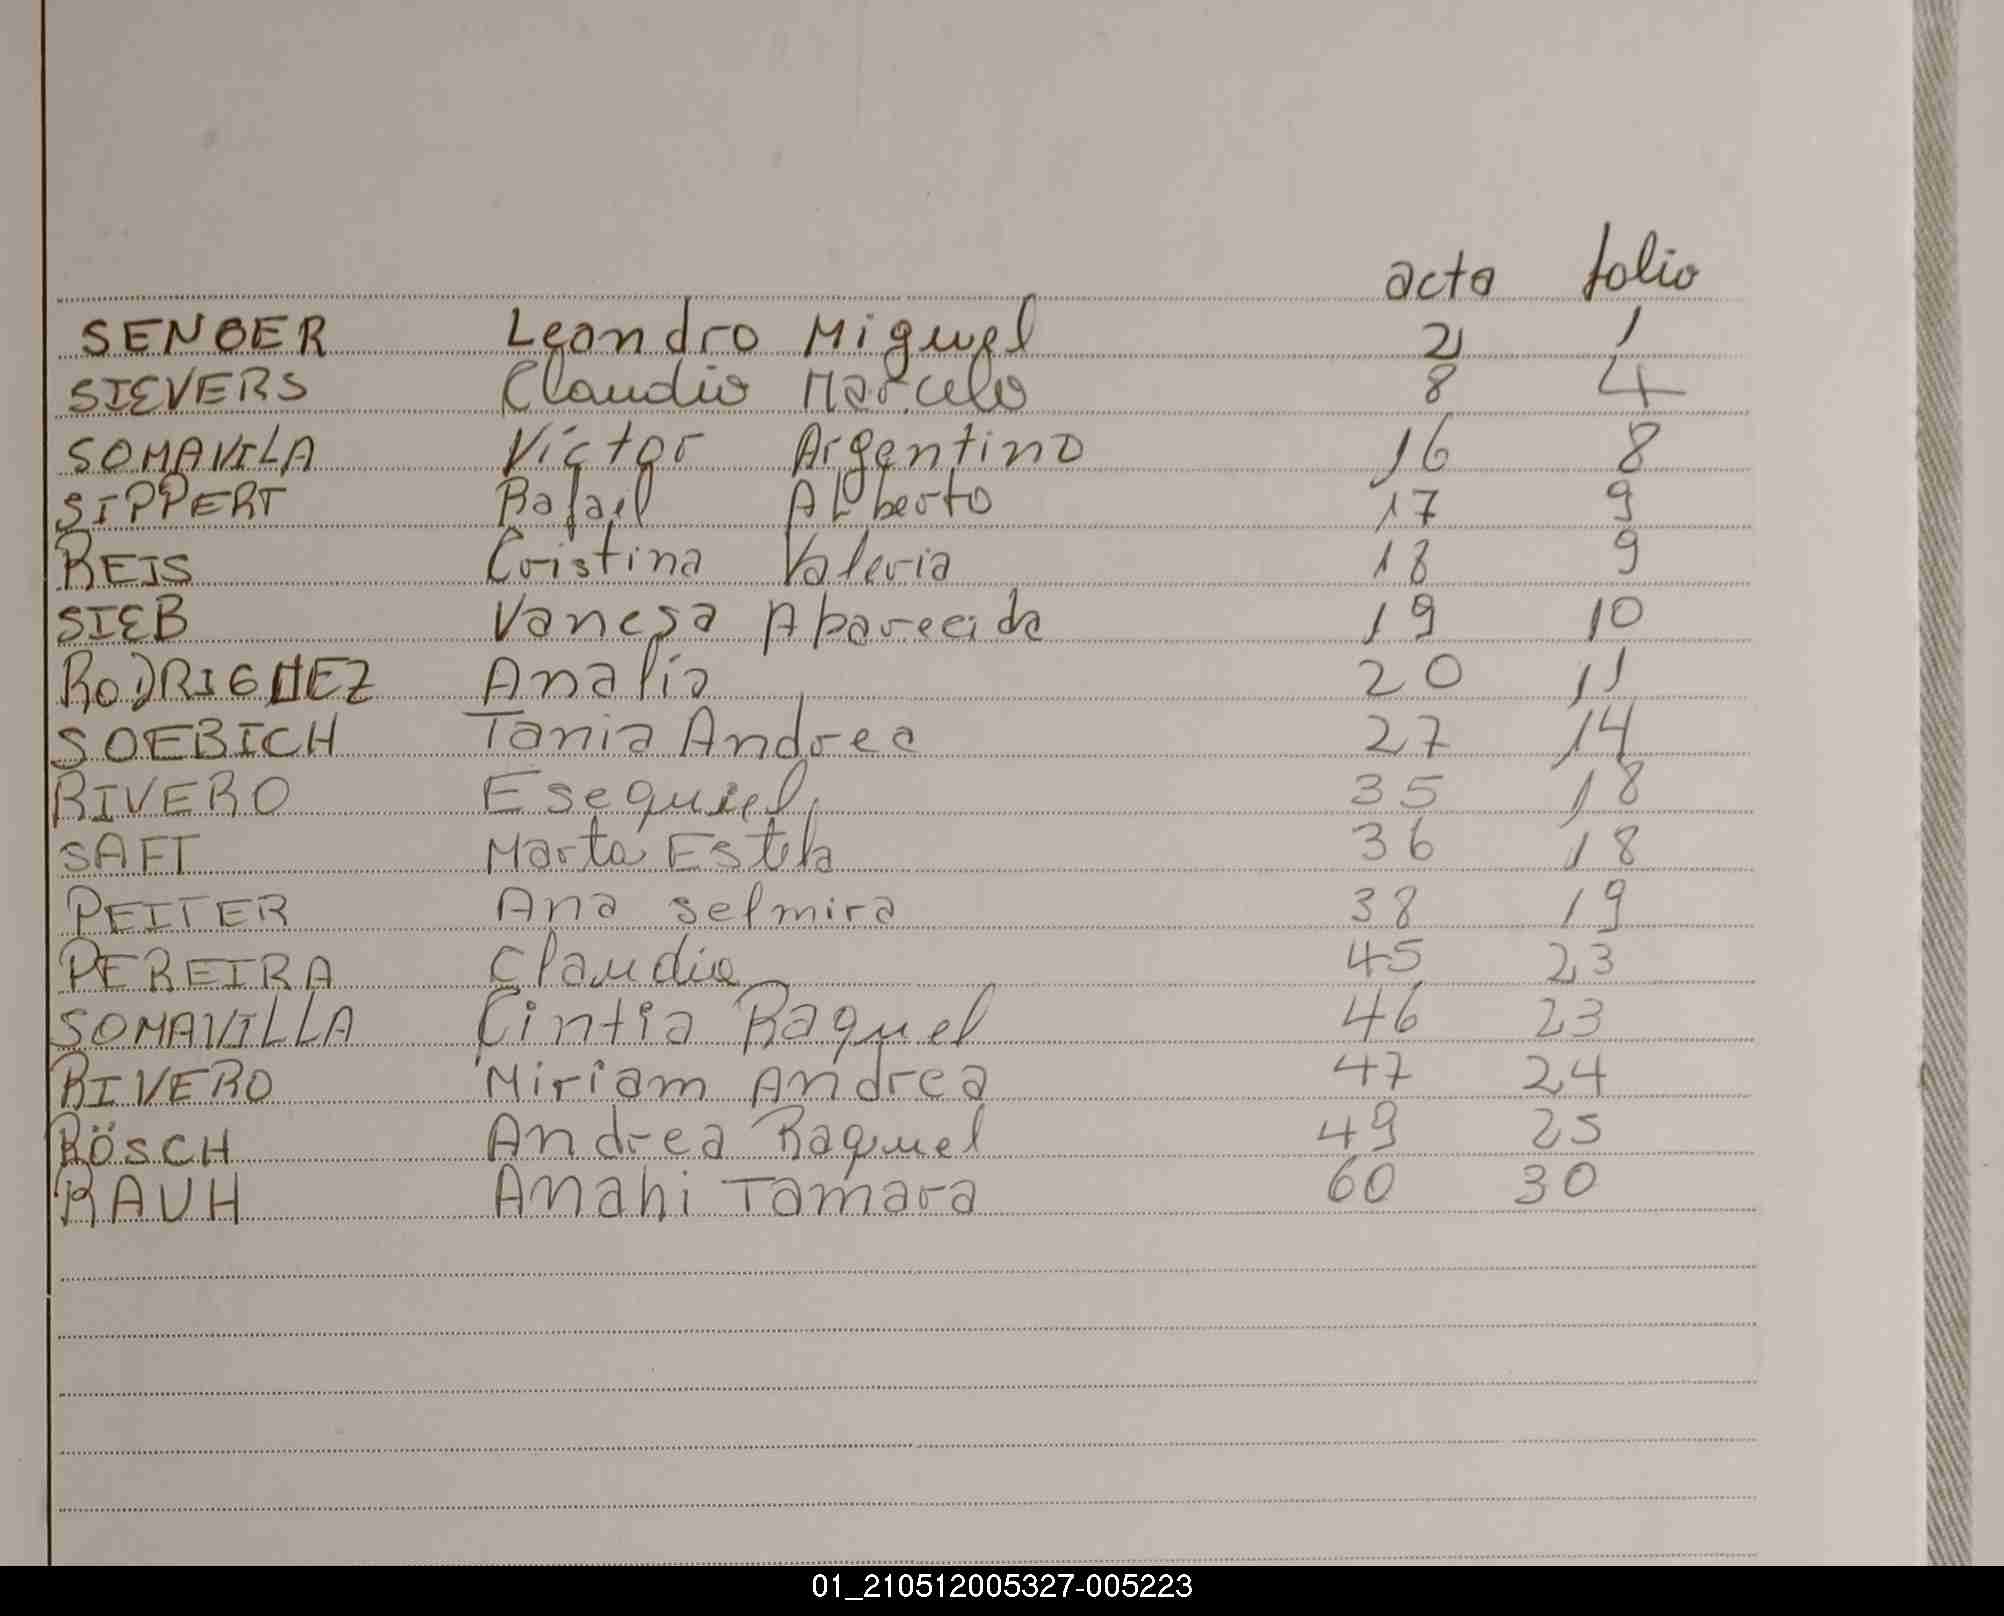 acta folio
SENGER Leandro Miguel 2 1
SIEVERS Claudio Marcelo 8 4
SOMAVILA Víctor Argentino 16 8
SIPPERT Rafael ALberto 17 9
REIS Cristina Valeria 18 9
SIEB Vanesa Aparecida 19 10
RODRIGUEZ Analia 20 11
SOEBICH Tania Andrea 27 14
RIVERO Esequiel 35 18
SAFT Marta Estela 36 18
PEITER Ana selmira 38 19
PEREIRA Claudio 45 23
SOMAVILLA Cintia Raquel 46 23
RIVERO Miriam Andrea 47 24
RÖSCH Andrea Raquel 49 25
RAUH Anahi Tamara 60 30
01_210512005327-005223